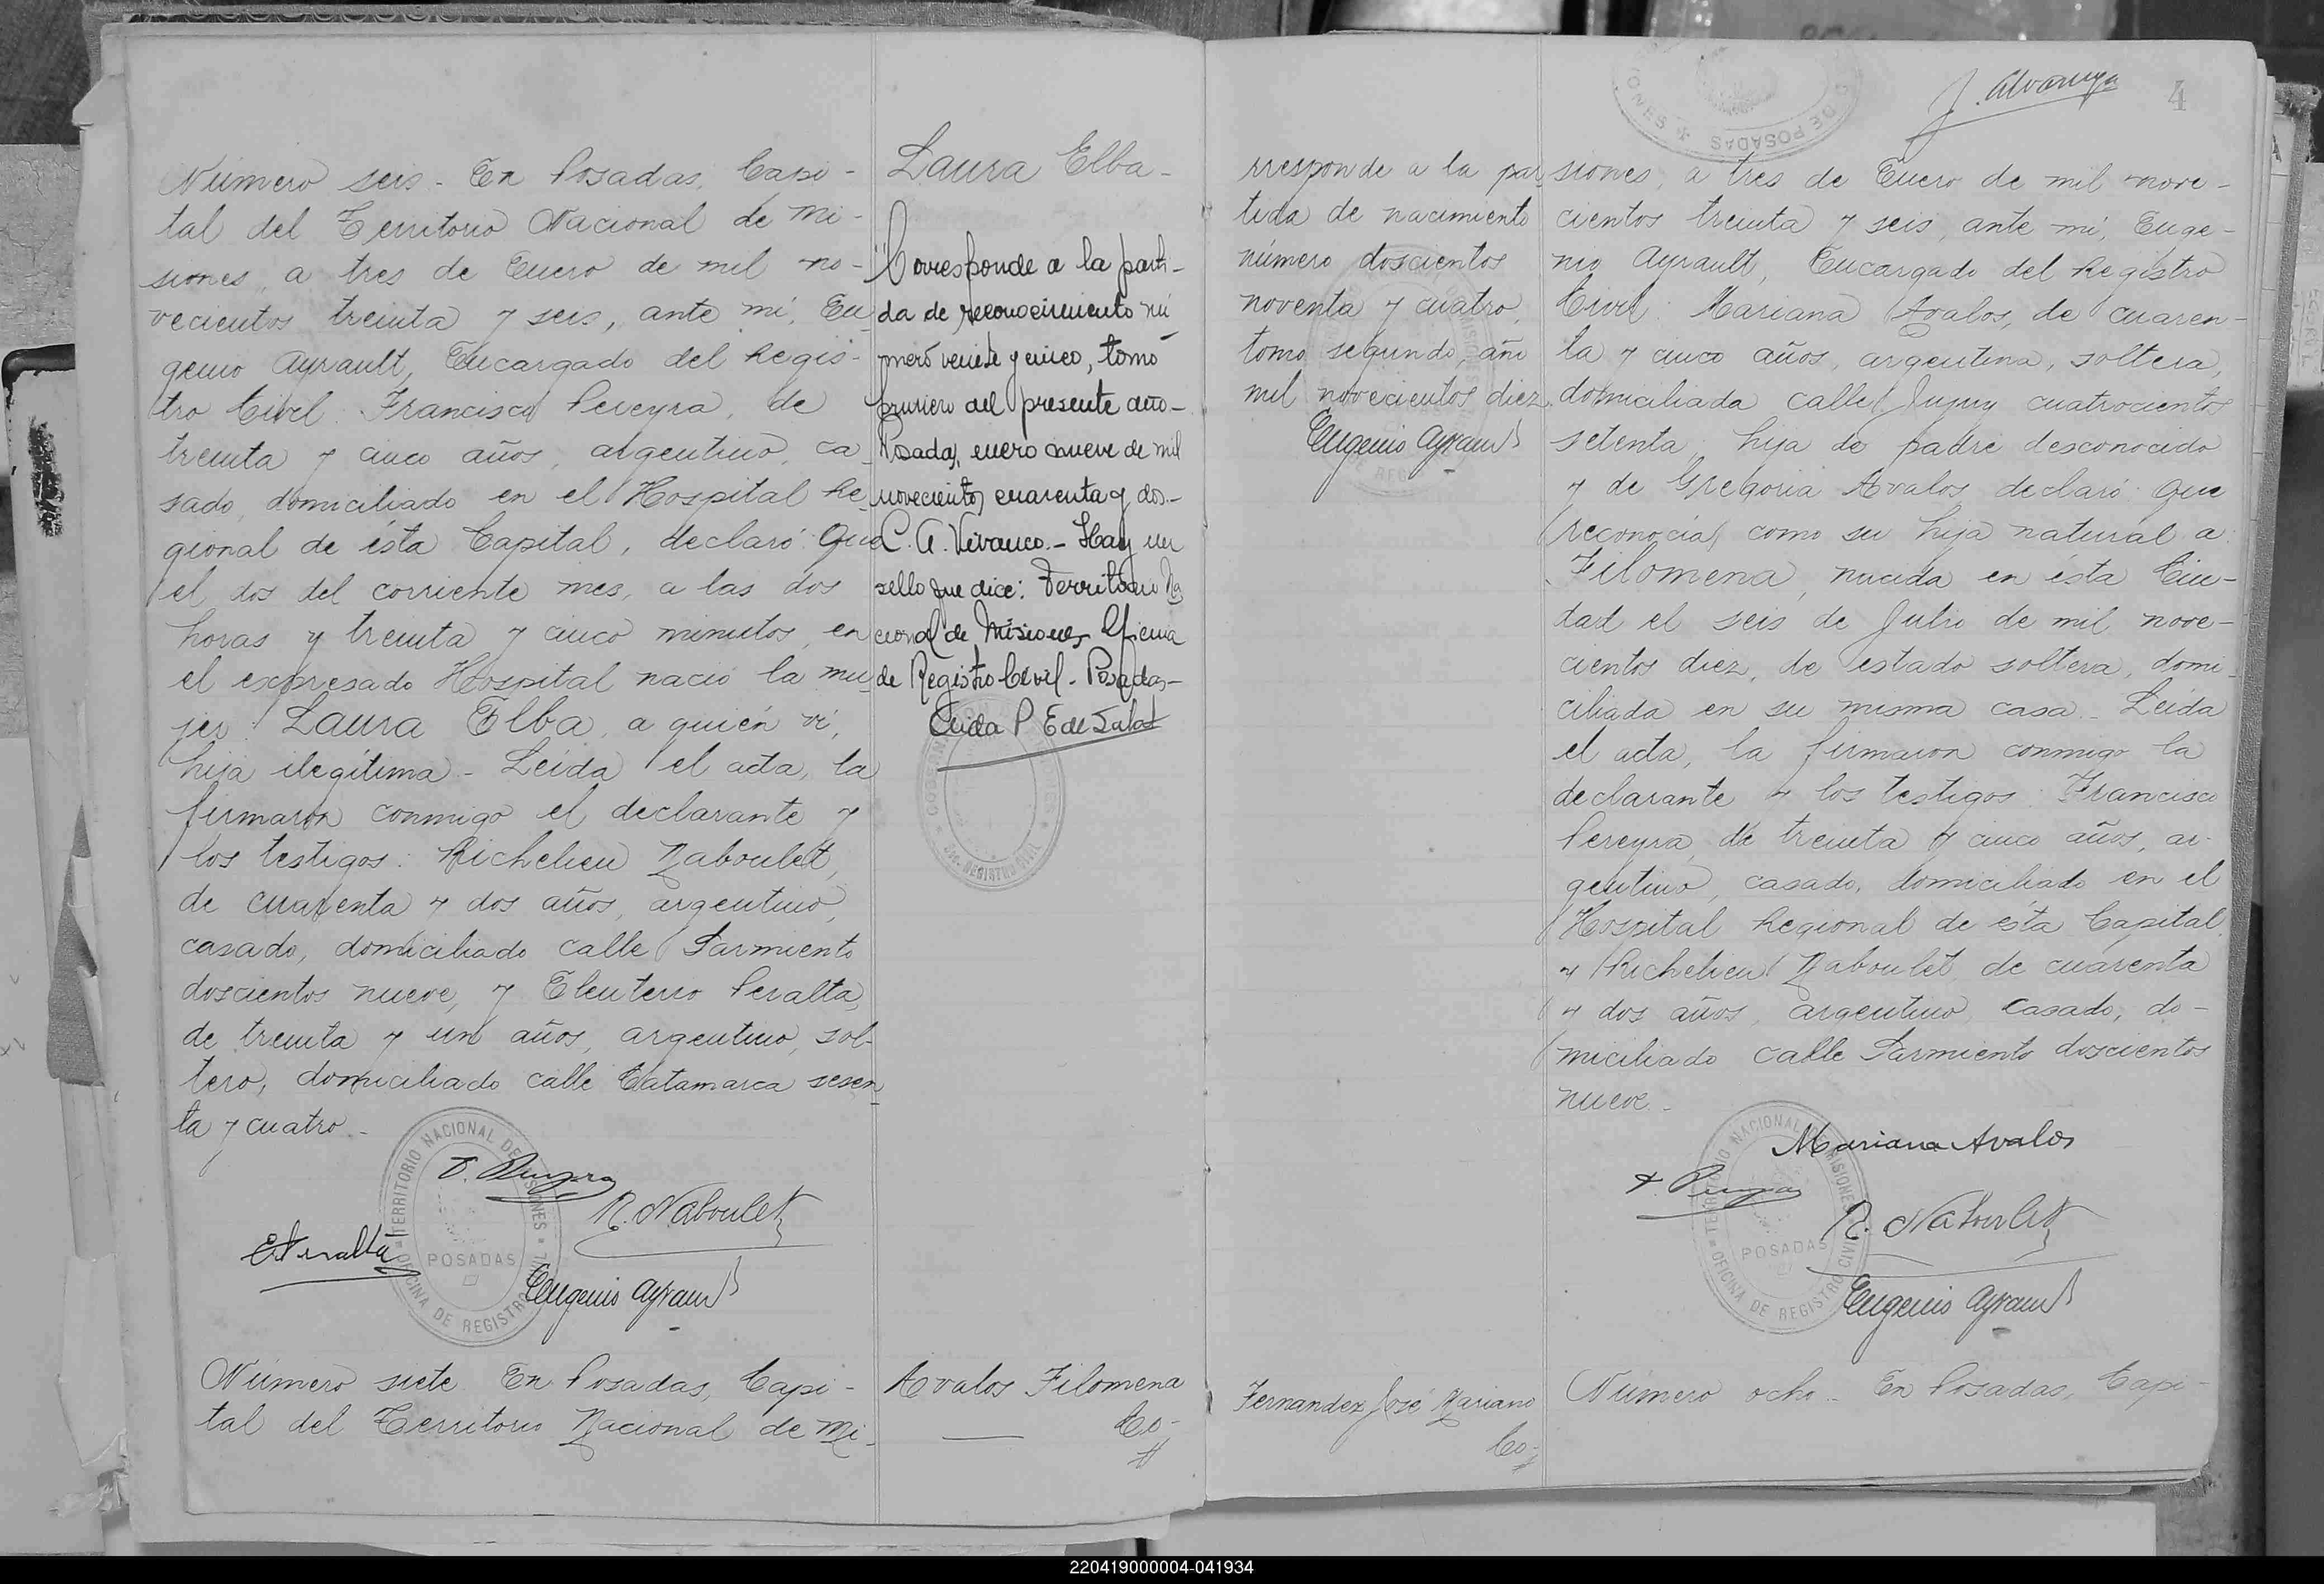 Número seis - En Posadas, Capi-
tal del Territorio Nacional de Mi-
siones, a tres de Enero de mil no-
vecientos treinta y seis, ante mi, Eu
genio Ayrault, Encargado del Regis-
tro Civil: Francisco Pereyra, de
treinta y cinco años, argentino, ca
sado, domiciliado en el Hospital Re
gional de ésta Capital, declaró: Que
el dos del corriente mes, a las dos
horas y treinta y cinco minutos, en
el expresado Hospital nació la mu
jer: Laura Elba, a quién ví,
hija ilegítima - Leída el acta, la
firmaron conmigo el declarante y
los testigos: Richelieu Naboulet,
de cuarenta y dos años, argentino,
casado, domiciliado calle Sarmiento
doscientos nueve, y Eleuterio Peralta,
de treinta y un años, argentino, sol-
tero, domiciliado calle Catamarca sesen
ta y cuatro -
TERRITORIO NACIONAL DE MISIONES
POSADAS
OFICINA DE REGISTRO CIVIL
F. Pereyra
R. Naboulet
E Peralta
Eugenio Ayrault
Número siete. En Posadas, Capi-
tal del Territorio Nacional de Mi-
Laura Elba -
"Corresponde a la parti-
da de reconocimiento nú
mero veinte y cinco, tomo
primero del presente año -
Posadas, enero nueve de mil
novecientos cuarenta y dos. -
C. A. Vivanco. - Hay un
sello que dice: Territorio Na
cional de Misiones Oficina
de Registro Civil - Posadas -
REGISTRO CIVIL
Avalos Filomena
Co-
J. Alvarenga
4
DE POSADAS
rresponde a la par
tida de nacimiento
número doscientos
noventa y cuatro,
tomo segundo, año
mil novecientos diez.
Eugenio Ayrault
Fernandez José Mariano
Co-
siones, a tres de Enero de mil nove-
cientos treinta y seis, ante mi, Euge-
nio Ayrault, Encargado del Registro
Civil: Mariana Avalos, de cuaren-
ta y cinco años, argentina, soltera,
domiciliada calle Jujuy cuatrocientos
setenta, hija de padre desconocido
y de Gregoria Avalos, declaró: Que
reconocía como su hija natural a:
Filomena, nacida en ésta Ciu-
dad el seis de Julio de mil nove-
cientos diez, de estado soltera, domi
ciliada en su misma casa - Leída
el acta, la firmaron conmigo la
declarante y los testigos: Francisco
Pereyra, de treinta y cinco años, ar-
gentino, casado, domiciliado en el
Hospital Regional de ésta Capital,
y Richelieu Naboulet, de cuarenta
y dos años, argentino, casado, do-
miciliado calle Sarmiento doscientos
nueve -
Mariana Avalos
F. Pereyra
R. Naboulet
TERRITORIO NACIONAL DE MISIONES
POSADAS
OFICINA DE REGISTRO CIVIL
Eugenio Ayrault
Número ocho - En Posadas, Capi-
220419000004-041934